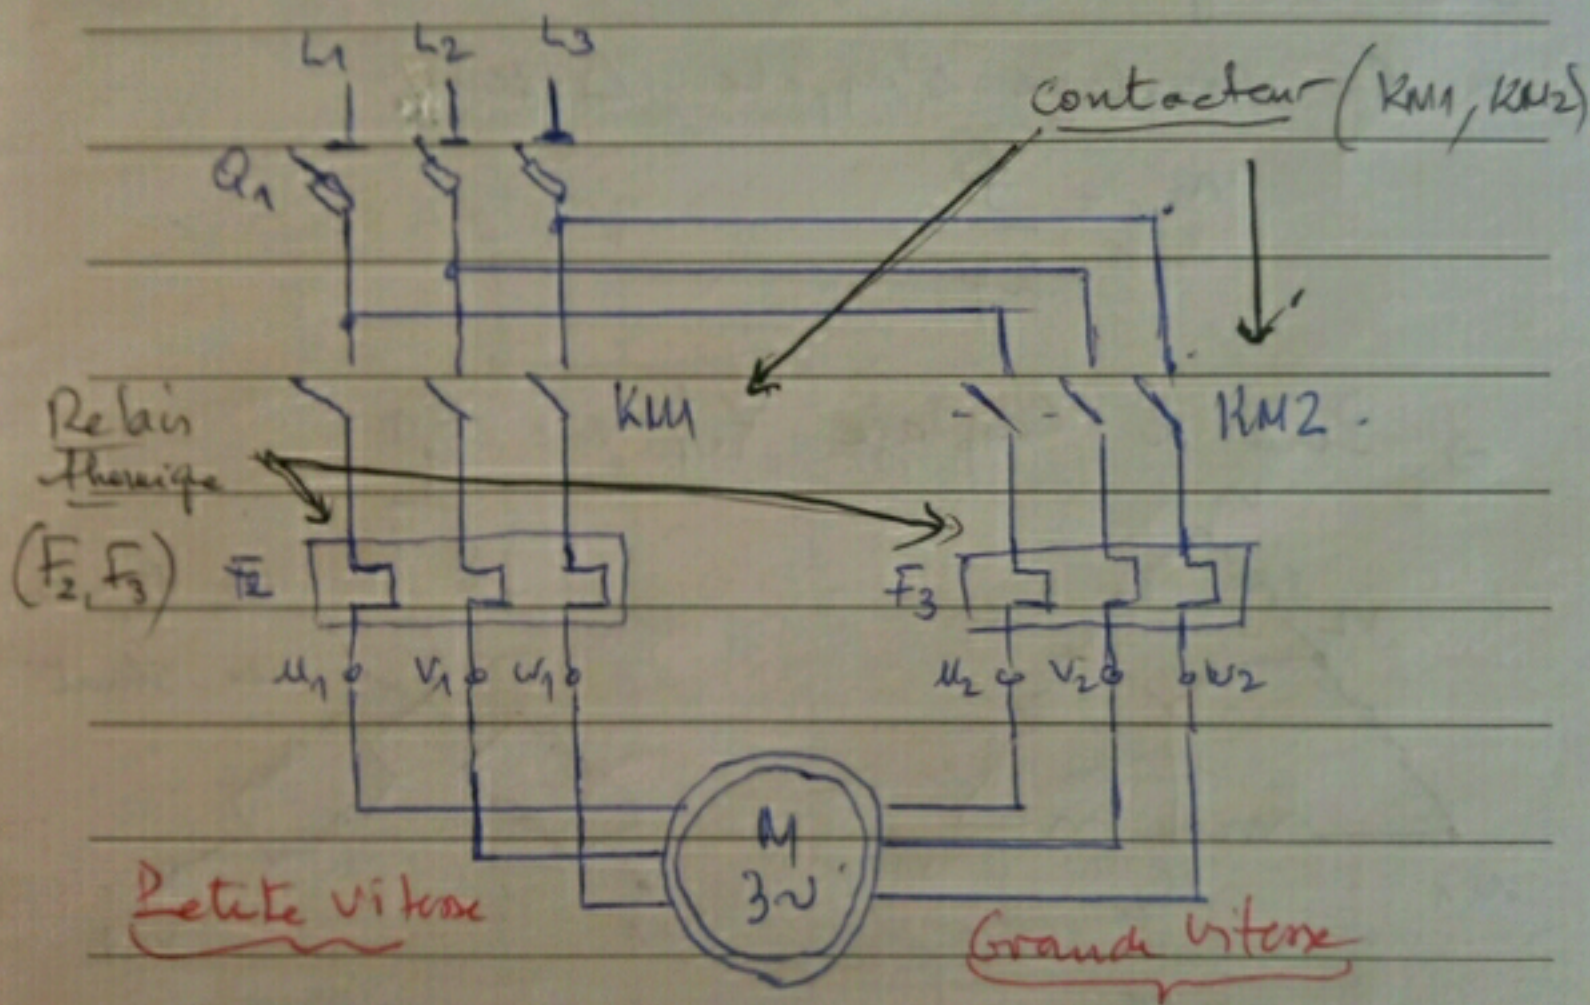 L1 L2 L3
contacteur (KM1, KM2)
Q1
KM1
KM2
Relais
thermique
(F2, F3)
F2
F3
u1 v1 w1
u2 v2 w2
M
3~
Petite vitesse
Grande vitesse